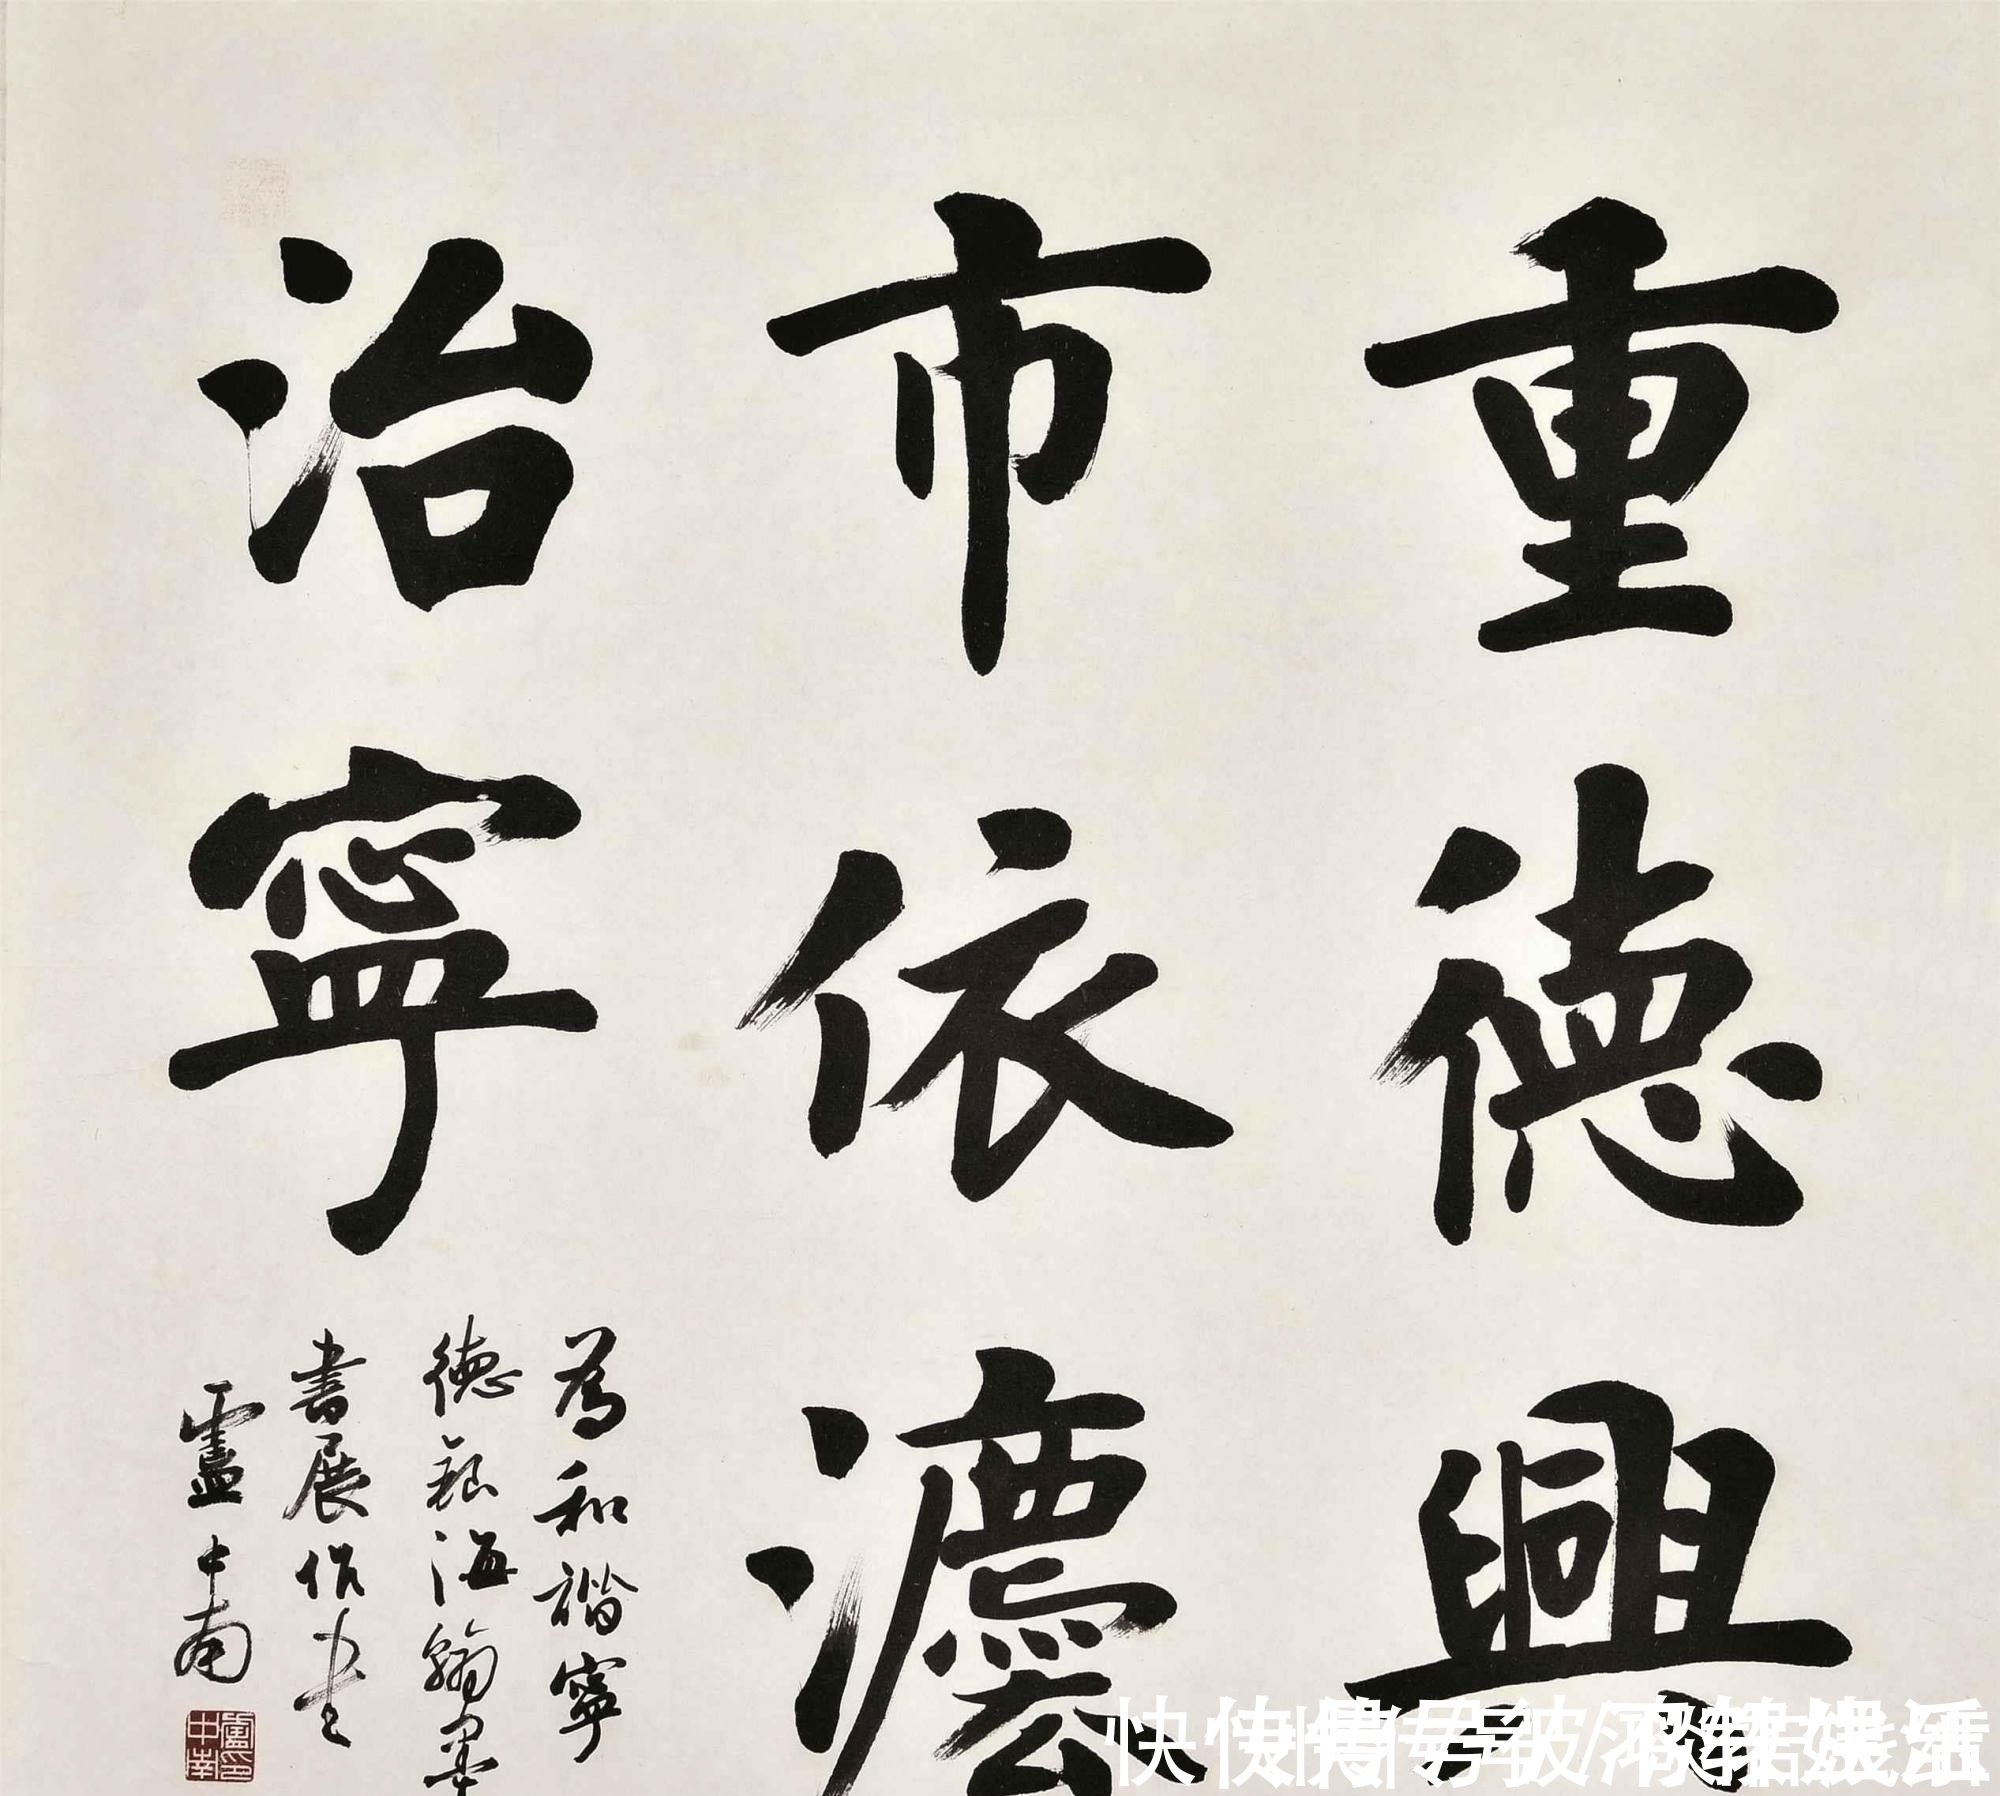 重德興
市依灋
治寧
為和諧寧
德銀海翰墨
書展作書
盧中南
盧中南印